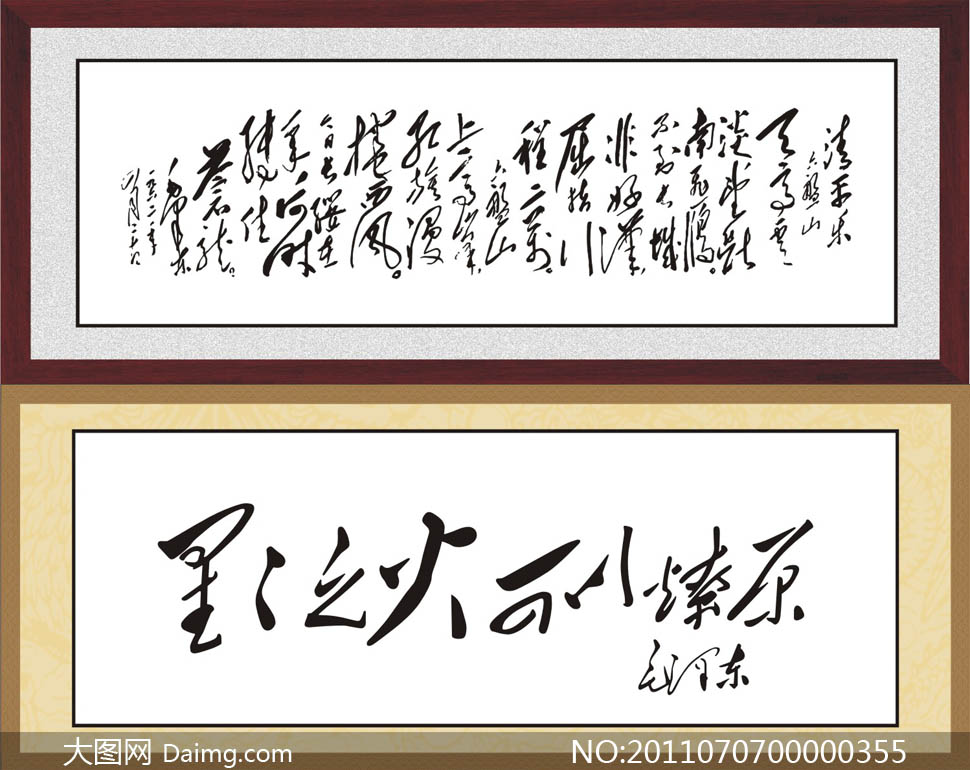 清平乐
六盤山
天高云
淡，望断
南飞雁。
不到长城
非好汉，
屈指行
程二万。
六盤山
上高峰，
红旗漫
捲西风。
今日长缨在
手，何时
缚住
苍龙。
毛泽东
星星之火可以燎原
毛泽东
大图网 Daimg.com
NO:2011070700000355